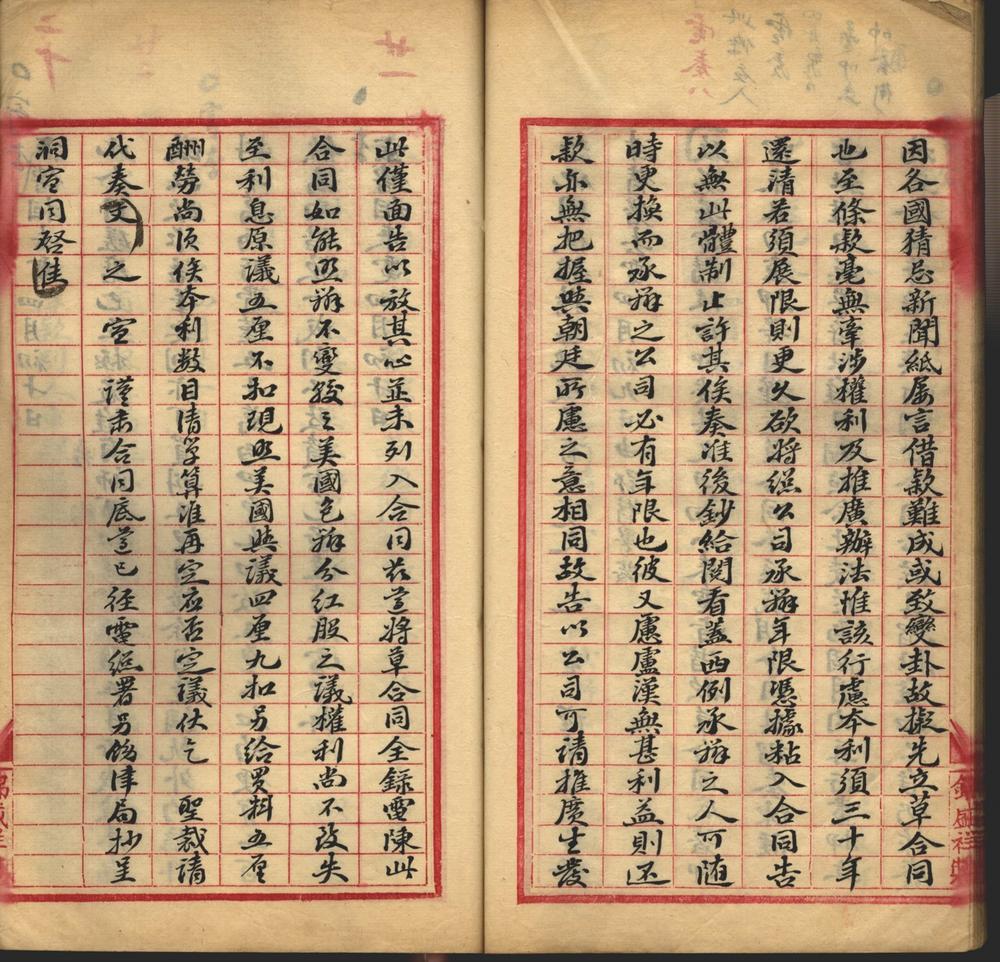 因各國猜忌新聞紙屢言借款難成或致變卦故擬先立草合同
也至條款毫無牽涉權利及推廣辦法惟該行慮本利須三十年
還清若須展限則更久欲將總公司承辦年限憑據粘入合同告
以無此體制止許其俟奏准後鈔給閱看蓋西例承辦之人可随
時更換而承辦之公司必有年限也彼又慮盧漢無甚利益則还
款亦無把握與朝廷所慮之意相同故告以公司可請推廣生發
廿一
此僅面告以放其心並未列入合同茲將草合同全錄電陳此
合同如能照辦不變較之美國包辦分紅股之議權利尚不致失
至利息原議五厘不扣現照美國與議四厘九扣另給買料五厘
酬勞尚須俟本利數目清算准再定應否定議伏乞 聖裁請
代奏文之 宣 謹肅合同底已径電總署另飭津局抄呈
洞宣同啓進